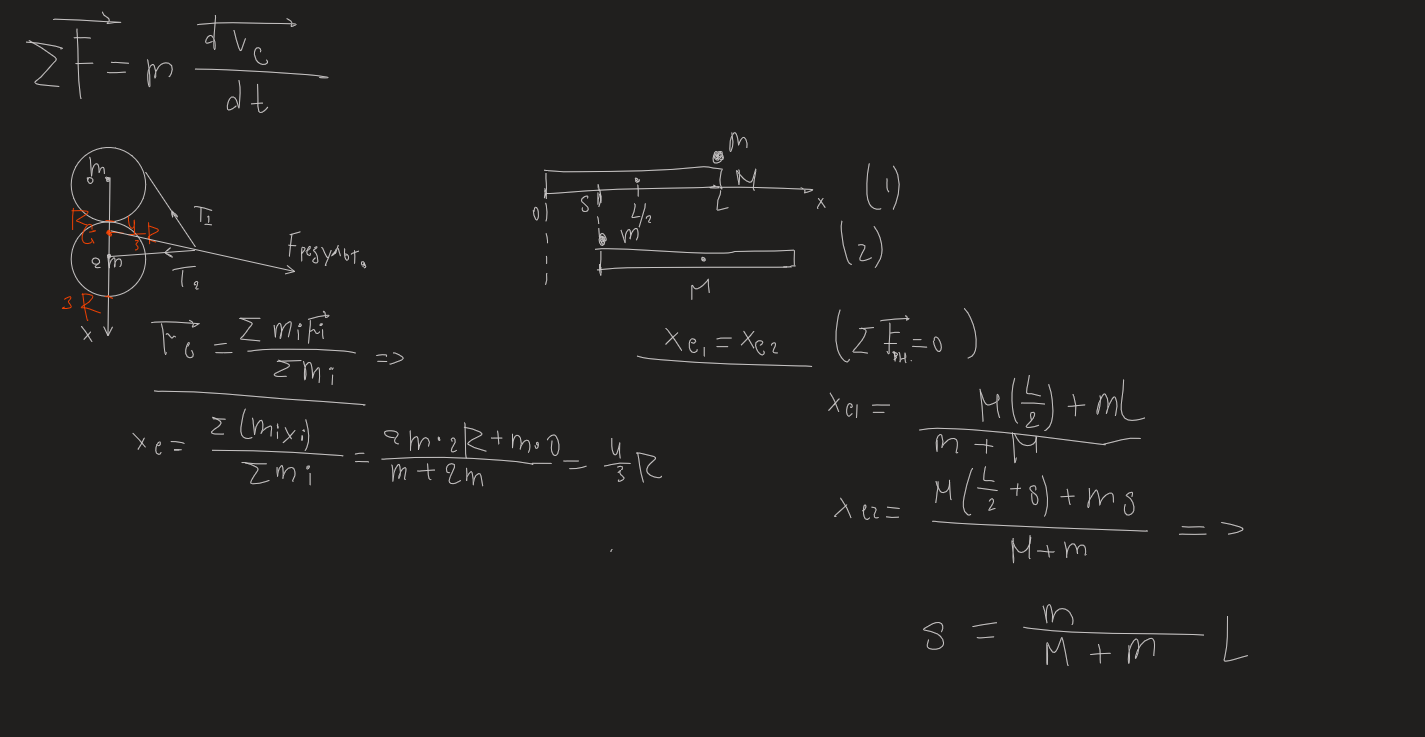 ΣF⃗ = m dv⃗_c / dt
m
R
C
4/3 R
2m
3R
x
T₁
T₂
Fрезульт.
r⃗_c = Σ mᵢr⃗ᵢ / Σ mᵢ =>
x_c = Σ(mᵢxᵢ) / Σ mᵢ = (2m·2R + m·0) / (m + 2m) = 4/3 R
m
M
0 S L/2 L x
(1)
m
M
(2)
x_c₁ = x_c₂ (ΣF⃗вн. = 0)
x_c₁ = (M(L/2) + mL) / (m + M)
x_c₂ = (M(L/2 + s) + ms) / (M + m) =>
s = m / (M + m) L